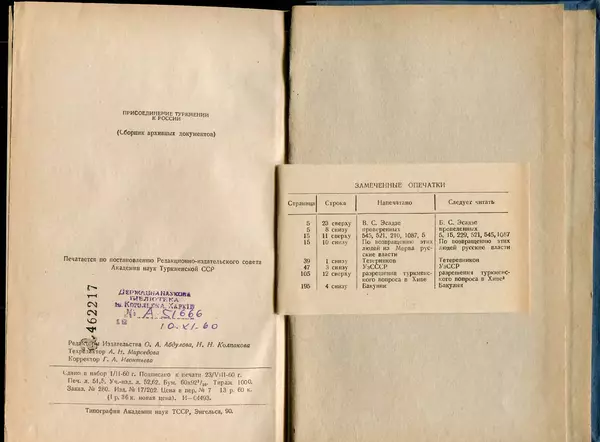 ПРИСОЕДИНЕНИЕ ТУРКМЕНИИ
К РОССИИ
(Сборник архивных документов)
Печатается по постановлению Редакционно-издательского совета
Академии наук Туркменской ССР
462217
ДЕРЖАВНА НАУКОВА
БІБЛІОТЕКА
ім. КОРОЛЕНКА, ХАРКІВ
№ А-51666
10-XI-60
Редакторы Издательства О. А. Абдулова, Н. Н. Колпакова
Техредактор А. Н.
Корректор Г. А.
Сдано в набор 1/II-60 г. Подписано к печати 23/VII-60 г.
Печ. л. 51,5. Уч.-изд. л. 52,62. Бум. 60х92¹/₁₆. Тираж 1000.
Заказ. № 280. Изд. № 17/202. Цена в пер. № 7 13 р. 60 к.
(1 р. 36 к. новая цена). И—04493.
Типография Академии наук ТССР, Энгельса, 90.
ЗАМЕЧЕННЫЕ ОПЕЧАТКИ
Страница Строка Напечатано Следует читать
5 23 сверху В. С. Эсадзе Б. С. Эсадзе
5 8 снизу проверенных проведенных
15 11 сверху 545, 521, 219, 1087, 5 5, 15, 229, 521, 545, 1087
15 10 снизу По возвращению этих По возвращению этих
людей из Мерва рус- людей русские власти
ские власти
39 1 снизу Тетерников Тетеревников
47 3 снизу УзССР УзССР
105 12 сверху разрешения туркмен- разрешения туркмен-
ского вопроса в Хиве ского вопроса в Хиве⁴
195 4 снизу Бакунин Бакулин